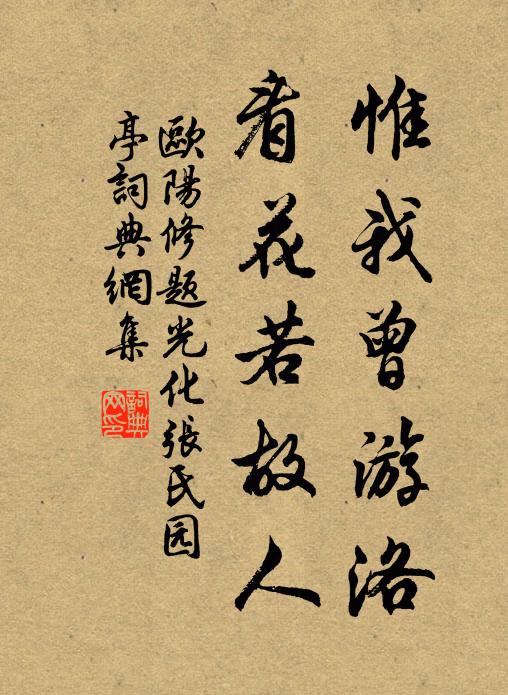 惟我曾游洛
看花若故人
歐陽修題光化張氏园
亭詞典網集
詞典网印